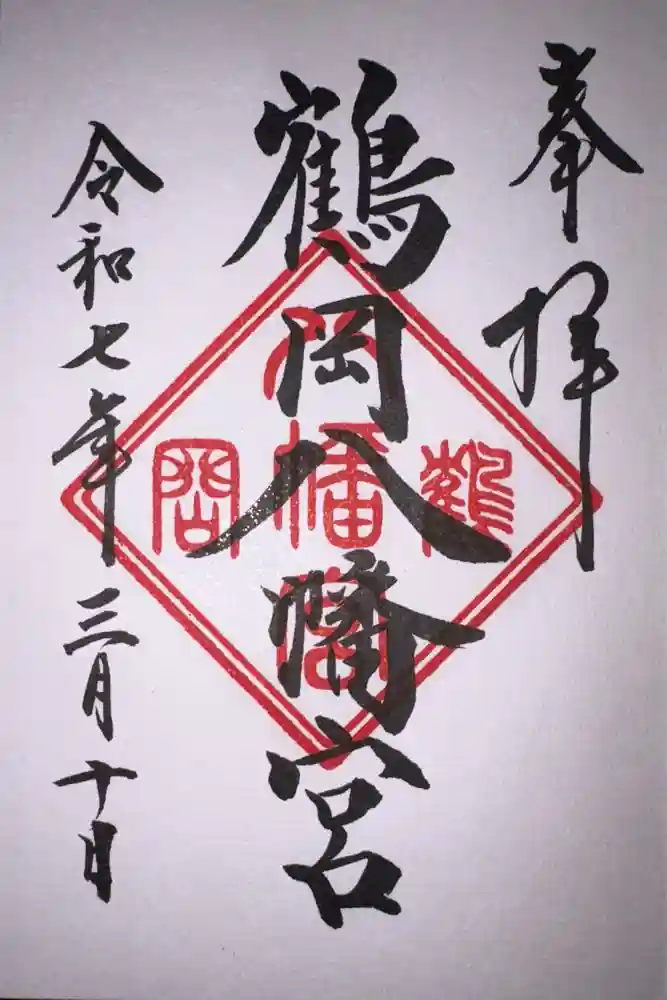 奉拝
鶴岡八幡宮
令和七年三月十日
鶴
八幡宮
岡